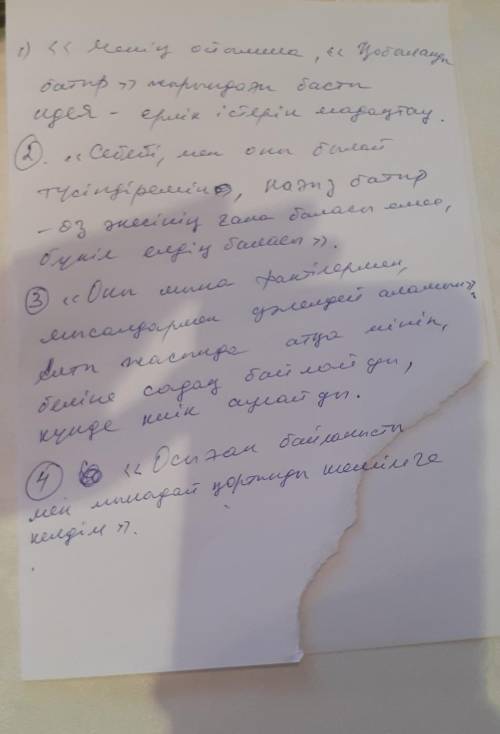 1) << Менің ойымша, << Қобыланды
батыр >> жырындағы басты
идея - ерлік істерін мадақтау.
2. "Себебі, мен оны былай
түсіндіремін, нағыз батыр
- өз әкесінің ғана баласы емес,
бүкіл елдің баласы >>.
3 << Оны мына фактілермен,
мысалдармен дәлелдей аламын>>
Алты жасында атқа мініп,
беліне садақ байлайды,
күнде киік аулайды.
4 << Осыған байланысты
мен мынадай қортынды шешімге
келдім >>.